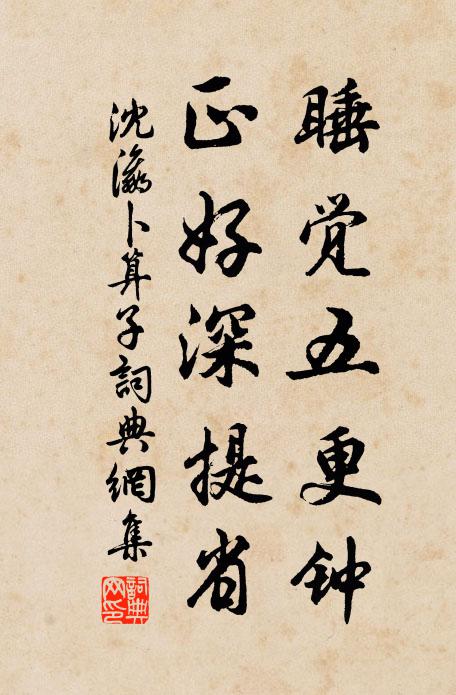 睡觉五更钟
正好深提省
沈瀛卜算子詞典網集
詞典網印